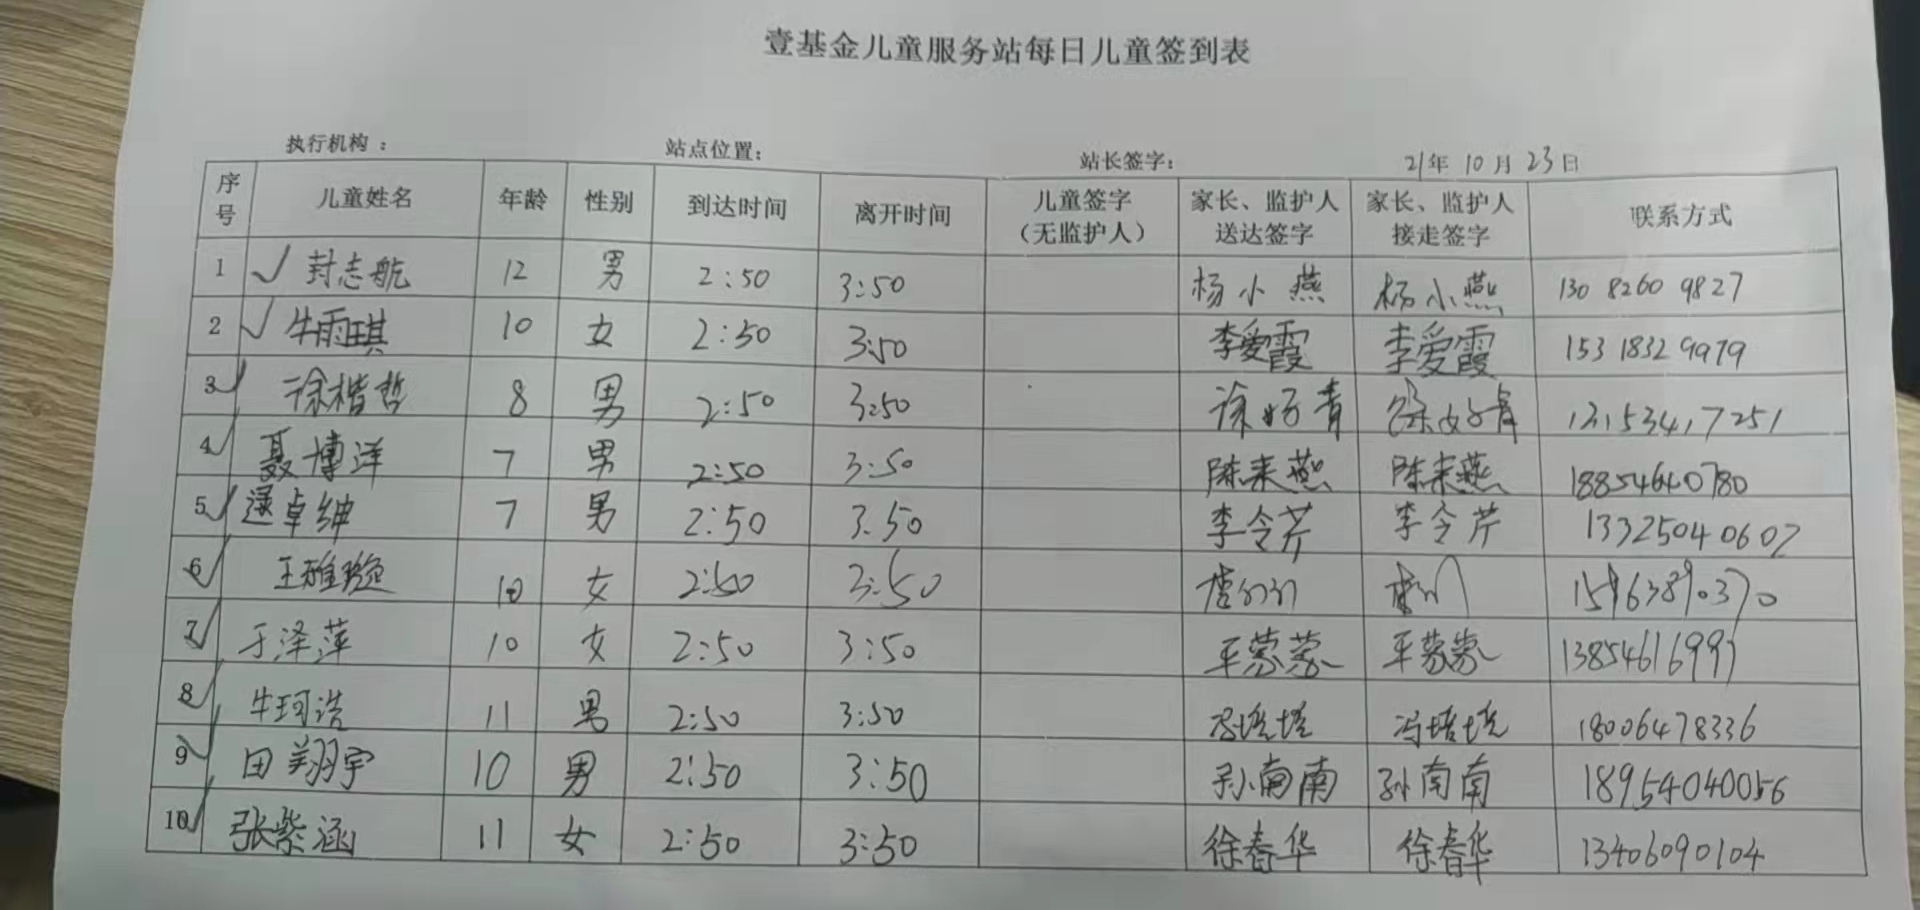 壹基金儿童服务站每日儿童签到表
执行机构： 站点位置： 站长签字： 21年 10月 23日
序号 儿童姓名 年龄 性别 到达时间 离开时间 儿童签字（无监护人） 家长、监护人送达签字 家长、监护人接走签字 联系方式
1 封志航 12 男 2:50 3:50 杨小燕 杨小燕 130 8260 9827
2 牛雨琪 10 女 2:50 3:50 李爱霞 李爱霞 153 1832 9979
3 徐楷哲 8 男 2:50 3:50
4 聂博洋 7 男 2:50 3:50 陈来燕 陈来燕 18854640780
5 逯卓绅 7 男 2:50 3.50 李令芹 李令芹 13325040602
6 10 女 2:50 3:50
7 于泽萍 10 女 2:50 3:50 平蒙蒙 平蒙蒙 13854616997
8 牛珂浩 11 男 2:50 3:50 冯培培 冯培培 18006478336
9 田翔宇 10 男 2:50 3:50 孙南南 孙南南 18954040056
10 张紫涵 11 女 2:50 3:50 徐春华 徐春华 13406090104